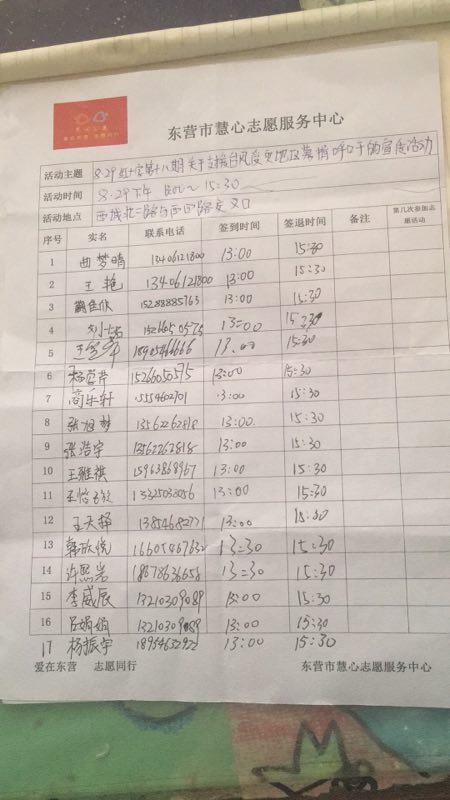 东营市慧心志愿服务中心
活动主题 8.29红十字第十八期关于支援台风受灾地及募捐呼吁的宣传活动
活动时间 8.29下午 15:30
活动地点 西城北二路与西四路交叉口
序号 实名 联系电话 签到时间 签退时间 备注 第几次参加志愿活动
1 曲梦晴 13406121800 13:00 15:30
2 王艳 13406121800 13:00 15:30
3 15288885763 13:00 15:30
4 13:00 15:30
5 13:00 15:30
6 15266050595 13:00 15:30
7 商乐轩 15:30
8 张旭梦 13562262818 13:00 15:30
9 张浩宇 13562262818 13:00 15:30
10 王雅祺 15963868967 13:00 15:30
11 13:00 15:30
12 王天择 13:00 15:30
13 韩欣悦 13=30 15:30
14 许熙岩 18678636658 13=30 15:30
15 李威辰 13210309089 13:00 15:30
16 吕娟娟 13:00 15:30
17 杨振宇 18954632922 13:00 15:30
爱在东营 志愿同行 东营市慧心志愿服务中心